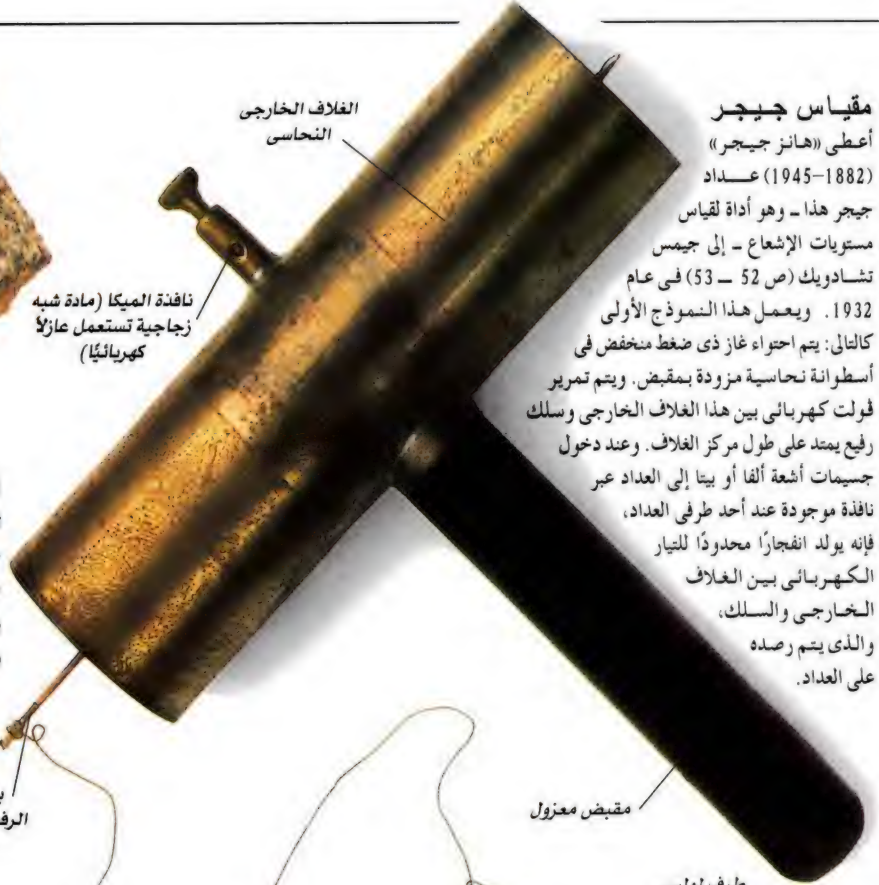 مقياس جيجر
أعطى «هانز جيجر»
(1882–1945) عـــداد
جيجر هذا ــ وهو أداة لقياس
مستويات الإشعاع ــ إلى جيمس
تشادويك (ص 52 ــ 53) فى عام
1932. ويعمل هذا النموذج الأولى
كالتالى: يتم احتواء غاز ذى ضغط منخفض فى
أسطوانة نحاسية مزودة بمقبض. ويتم تمرير
ڤولت كهربائى بين هذا الغلاف الخارجى وسلك
رفيع يمتد على طول مركز الغلاف. وعند دخول
جسيمات أشعة ألفا أو بيتا إلى العداد عبر
نافذة موجودة عند أحد طرفى العداد،
فإنه يولد انفجارًا محدودًا للتيار
الكهربائى بين الغلاف
الخارجى والسلك،
والذى يتم رصده
على العداد.
الغلاف الخارجى
النحاسى
نافذة الميكا (مادة شبه
زجاجية تستعمل عازلاً
كهربائيًا)
مقبض معزول